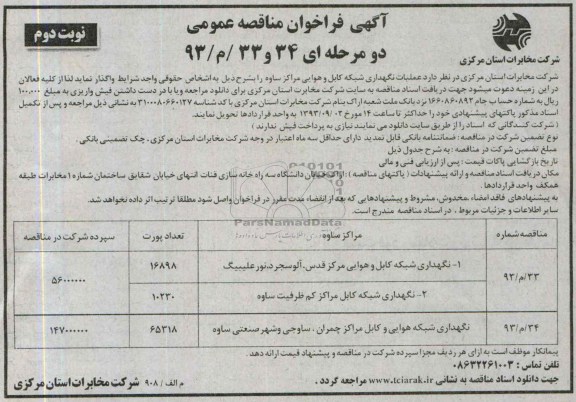 آگهی فراخوان مناقصه عمومی
دو مرحله ای ۳۴ و ۳۳ /م/ ۹۳
نوبت دوم
شرکت مخابرات استان مرکزی
شرکت مخابرات استان مرکزی در نظر دارد عملیات نگهداری شبکه کابل و هوایی مراکز ساوه را بشرح ذیل به اشخاص حقوقی واجد شرایط واگذار نماید لذا از کلیه فعالان
در این زمینه دعوت میشود جهت دریافت اسناد مناقصه به سایت شرکت مخابرات استان مرکزی برای دانلود مراجعه و یا با در دست داشتن فیش واریزی به مبلغ ۱۰۰,۰۰۰
ریال به شماره حساب جام ۱۶۶۰۸۶۰۸۹۲ نزد بانک ملت شعبه اراک بنام شرکت مخابرات استان مرکزی با کد شناسه ۳۱۰۰۰۸۰۶۶۰۱۲۷ به نشانی ذیل مراجعه و پس از تکمیل
اسناد مذکور پاکتهای پیشنهادی خود را حداکثر تا ساعت ۱۴ مورخ ۱۳۹۳/۰۹/۰۲ به واحد قراردادها تحویل نمایند.
( شرکت کنندگانی که اسناد را از طریق سایت دانلود می نمایند نیازی به پرداخت فیش ندارند )
نوع تضمین شرکت در مناقصه: ضمانتنامه بانکی قابل تمدید دارای حداقل سه ماه اعتبار در وجه شرکت مخابرات استان مرکزی، چک تضمینی بانکی.
مبلغ تضمین شرکت در مناقصه : به شرح جدول ذیل
تاریخ بازگشایی پاکات قیمت : پس از ارزیابی فنی و مالی
مکان دریافت اسناد مناقصه و ارائه پیشنهادات ( پاکتهای مناقصه ) : اراک خیابان دانشگاه سه راه خانه سازی قنات انتهای خیابان شقایق ساختمان شماره ۱ مخابرات طبقه
همکف واحد قراردادها .
به پیشنهادهای فاقد امضاء، مخدوش، مشروط و پیشنهادهایی که بعد از انقضاء مدت مقرر در فراخوان واصل شود مطلقا ترتیب اثر داده نخواهد شد.
سایر اطلاعات و جزئیات مربوط ، در اسناد مناقصه مندرج است.
ParsNamadData
مناقصه شماره
مراکز ساوه
تعداد پورت
سپرده شرکت در مناقصه
۳۳/م/۹۳
۱- نگهداری شبکه کابل و هوایی مرکز قدس، آلوسجرد، نورعلیبیگ
۱۶۸۹۸
۵۶۰۰۰۰۰۰
۲- نگهداری شبکه کابل مراکز کم ظرفیت ساوه
۱۰۲۳۰
۳۴/م/۹۳
نگهداری شبکه هوایی و کابل مراکز چمران ، ساوجی و شهر صنعتی ساوه
۶۵۳۱۸
۱۴۷۰۰۰۰۰۰
پیمانکار موظف است به ازای هر ردیف مجزا سپرده شرکت در مناقصه و پیشنهاد قیمت ارائه دهد.
تلفن تماس : ۰۸۶۳۲۲۶۱۰۰۳
جهت دانلود اسناد مناقصه به نشانی www.tciarak.ir مراجعه گردد .
م الف / ۹۰۸ شرکت مخابرات استان مرکزی